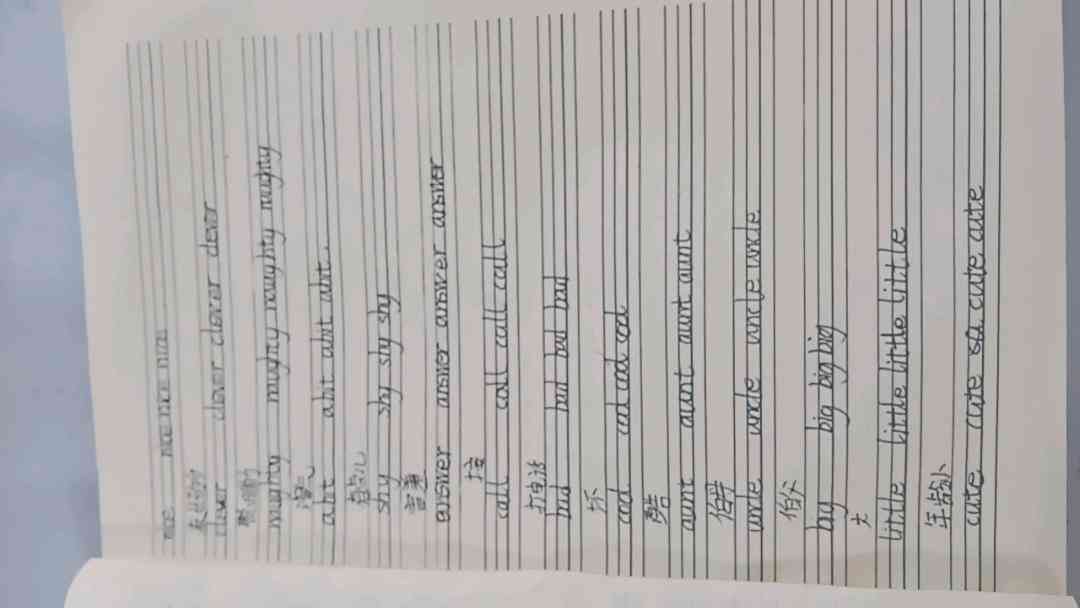 nice nice nice nice
clever clever clever clever
聪明的
naughty naughty naughty naughty
淘气
abit abit abit abit.
有点儿
shy shy shy shy
害羞
answer answer answer answer
接
call call call call
打电话
bad bad bad bad
坏
cool cool cool cool
酷
aunt aunt aunt aunt
伯母
uncle uncle uncle uncle
伯父
big big big big
大
little little little little
年龄小
cute cute cute cute